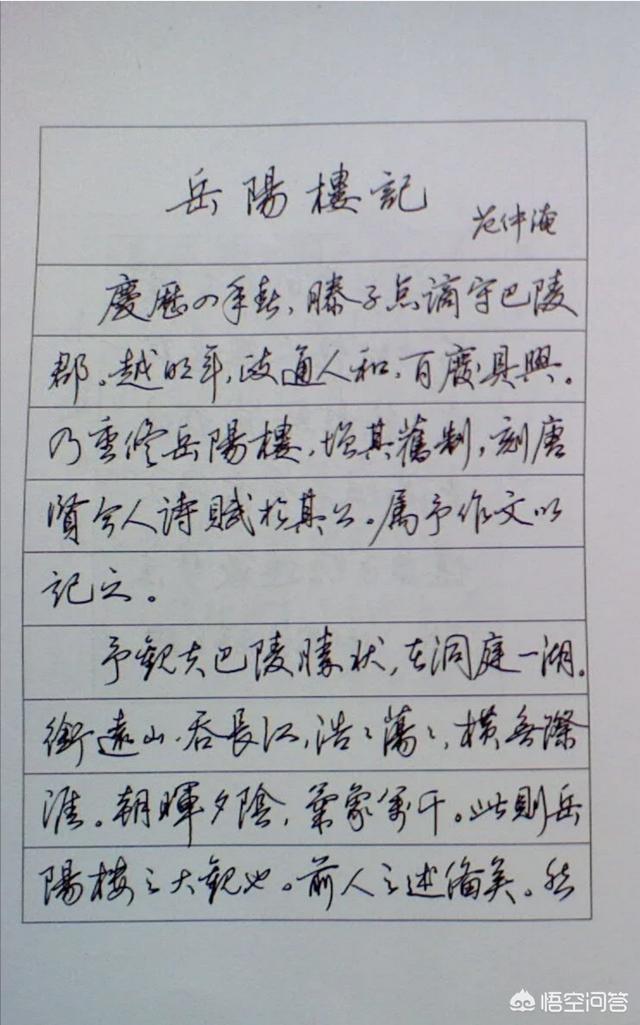 岳陽樓記
范仲淹
慶歷四年春，滕子京謫守巴陵
郡。越明年，政通人和，百廢具興。
乃重修岳陽樓，增其舊制，刻唐
賢今人诗賦於其上。属予作文以
記之。
予觀夫巴陵勝狀，在洞庭一湖。
銜遠山，吞長江，浩々蕩々，橫無際
涯。朝暉夕陰，氣象萬千。此則岳
陽樓之大觀也。前人之述備矣。然
悟空问答